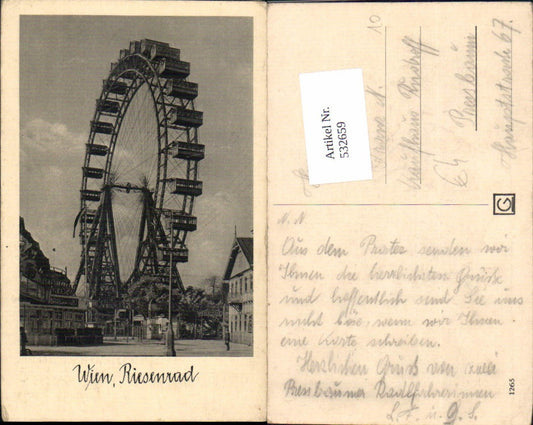 Wien, Riesenrad
10
Artikel Nr.
532659
Kaufhaus
Pressbaum
Hauptstraße 67.
G
N. N.
Aus dem Prater senden wir
Ihnen die herzlichsten Grüße
und hoffentlich sind Sie uns
nicht böse, wenn wir Ihnen
eine Karte schreiben.
Herzlichen Gruß von zwei
Pressbaumer Radlfahrerinnen
L. F. u. G. S.
1265